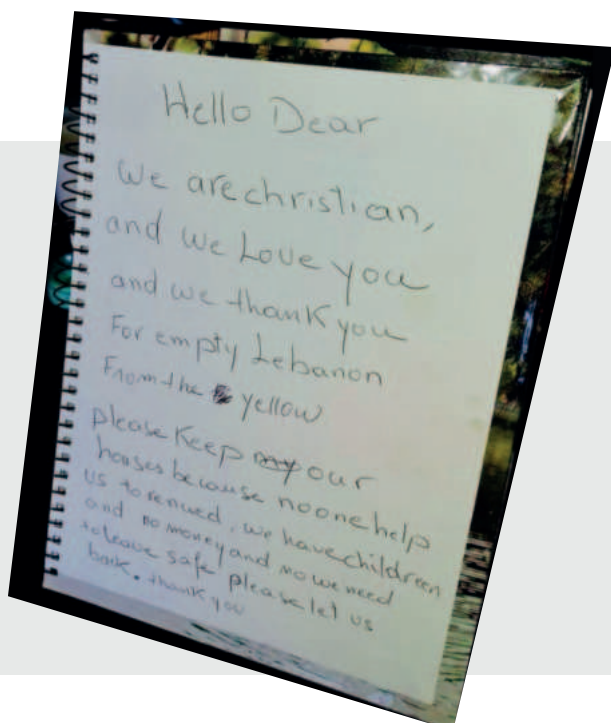 Hello Dear
We are christian,
and we Love you
and we thank you
For empty Lebanon
From the yellow
please Keep our
houses because no one help
us to renued, we have childreen
and no money and no we need
to leave safe please let us
back. thank you